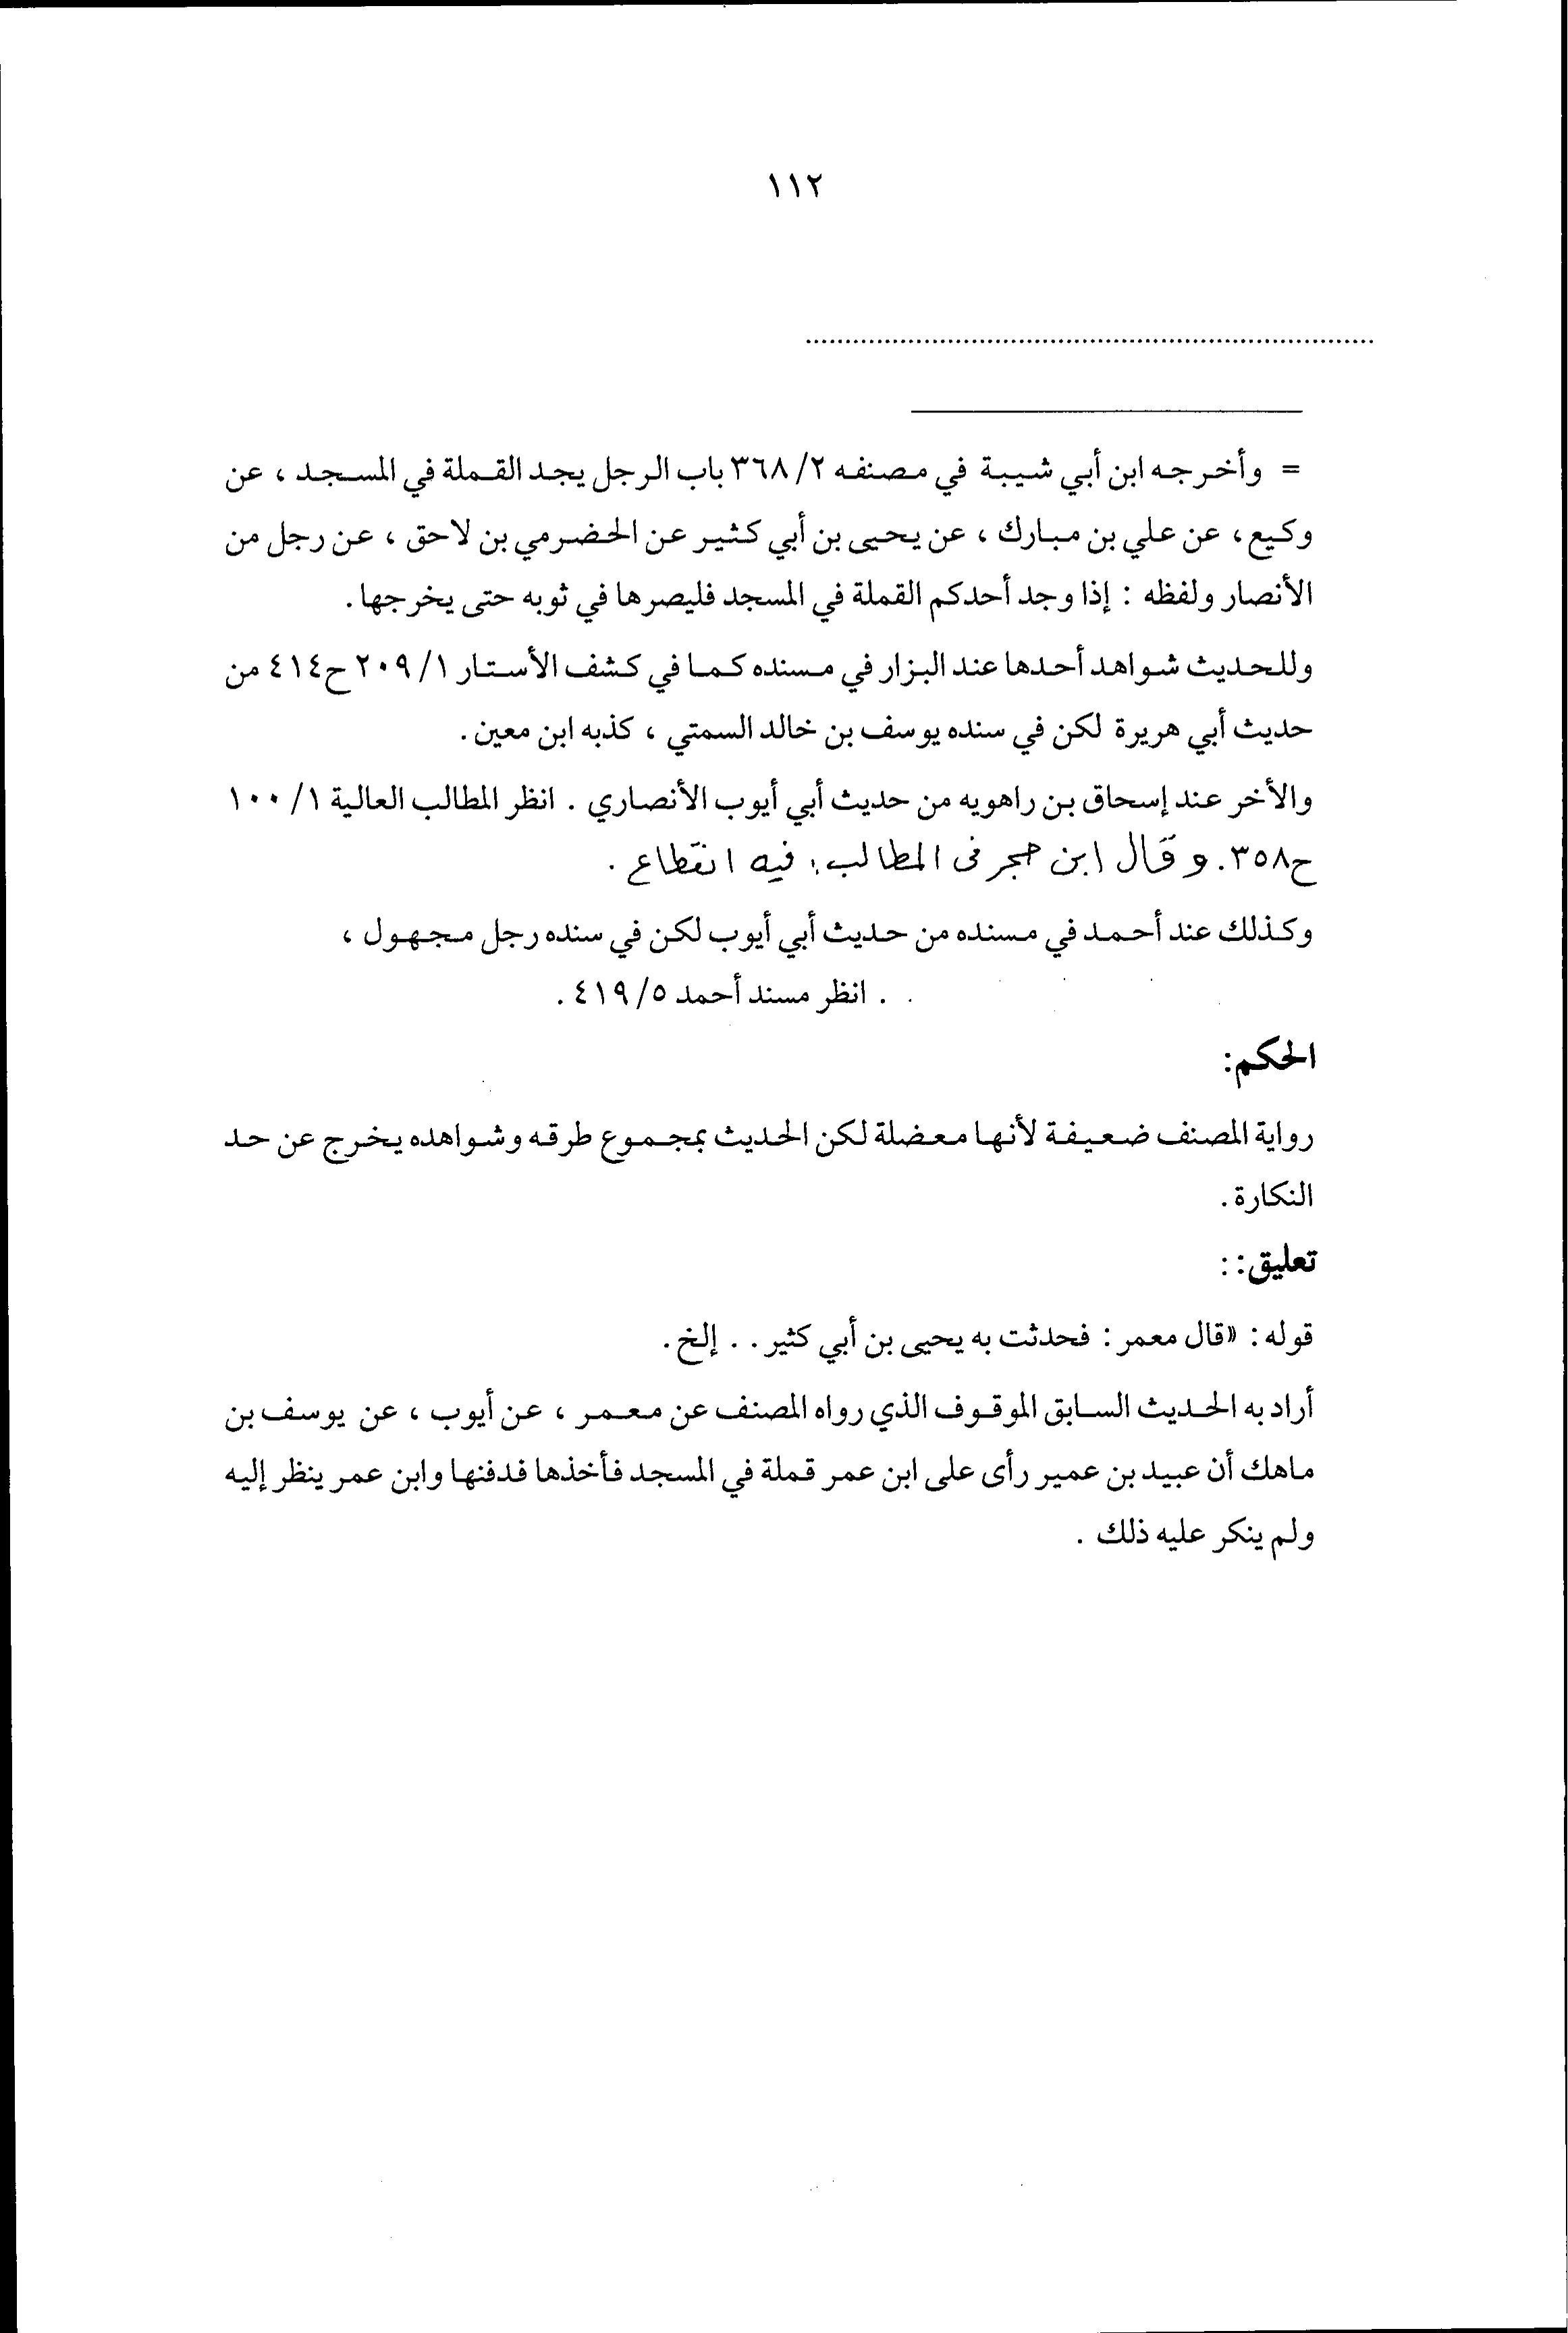 ١١٢
......................................................................
= وأخرجه ابن أبي شيبة في مصنفه ٢/ ٣٦٨ باب الرجل يجد القملة في المسجد ، عن
وكيع، عن علي بن مبارك ، عن يحيى بن أبي كثير عن الحضرمي بن لاحق ، عن رجل من
الأنصار ولفظه : إذا وجد أحدكم القملة في المسجد فليصرها في ثوبه حتى يخرجها.
وللحديث شواهد أحدها عند البزار في مسنده كما في كشف الأستار ١/ ٢٠٩ ح٤١٤ من
حديث أبي هريرة لكن في سنده يوسف بن خالد السمتي ، كذبه ابن معين.
والأخر عند إسحاق بن راهويه من حديث أبي أيوب الأنصاري . انظر المطالب العالية ١/ ١٠٠
ح٣٥٨. وقال ابن حجر فى المطالب: فيه انقطاع .
وكذلك عند أحمد في مسنده من حديث أبي أيوب لكن في سنده رجل مجهول ،
. . انظر مسند أحمد ٥/ ٤١٩ .
الحكم:
رواية المصنف ضعيفة لأنها معضلة لكن الحديث بمجموع طرقه وشواهده يخرج عن حد
النكارة.
تعليق: :
قوله: «قال معمر: فحدثت به يحيى بن أبي كثير. . إلخ.
أراد به الحديث السابق الموقوف الذي رواه المصنف عن معمر ، عن أيوب ، عن يوسف بن
ماهك أن عبيد بن عمير رأى على ابن عمر قملة في المسجد فأخذها فدفنها وابن عمر ينظر إليه
ولم ينكر عليه ذلك .